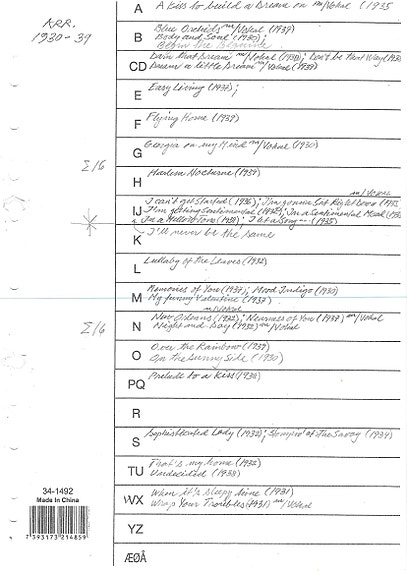 ARR.
1930-39
A A Kiss to build a Dream on m/Vokal (1935
B Blue Orchids m/Vokal (1939)
Body and Soul (1930);
Begin the Beguine
CD Darn that Dream m/Vokal (1939); Don't be that Way (1938
Dream a little Dream m/Vokal (1939)
E Easy Living (1937);
F Flying Home (1939)
G Georgia on my Mind m/Vokal (1930)
Σ/6
H Harlem Nocturne (1939)
m/Vokal
IJ I can't get Started (1936); I'm gonna Sit Right Down (1935
I'm getting Sentimental (1932); In a Sentimental Mood (1935
In a Mellow Tone (1939); I let a Song
K I'll never be the same
L Lullaby of the Leaves (1932)
M Memories of You (1930); Mood Indigo (1930)
My Funny Valentine (1937)
m/Vokal
Σ/6
N New Orleans (1932); Nearness of You (1937) m/Vokal
Night and Day (1932) m/Vokal
O Over the Rainbow (1939)
On the Sunny Side (1930)
PQ Prelude to a Kiss (1938)
R
S Sophisticated Lady (1932); Stompin' at The Savoy (1934)
TU That's my home (1932)
Undecided (1938)
WX When it's Sleepy time (1931)
Wrap Your Troubles (1931) m/Vokal
YZ
ÆØÅ
34-1492
Made in China
7 393173 214859